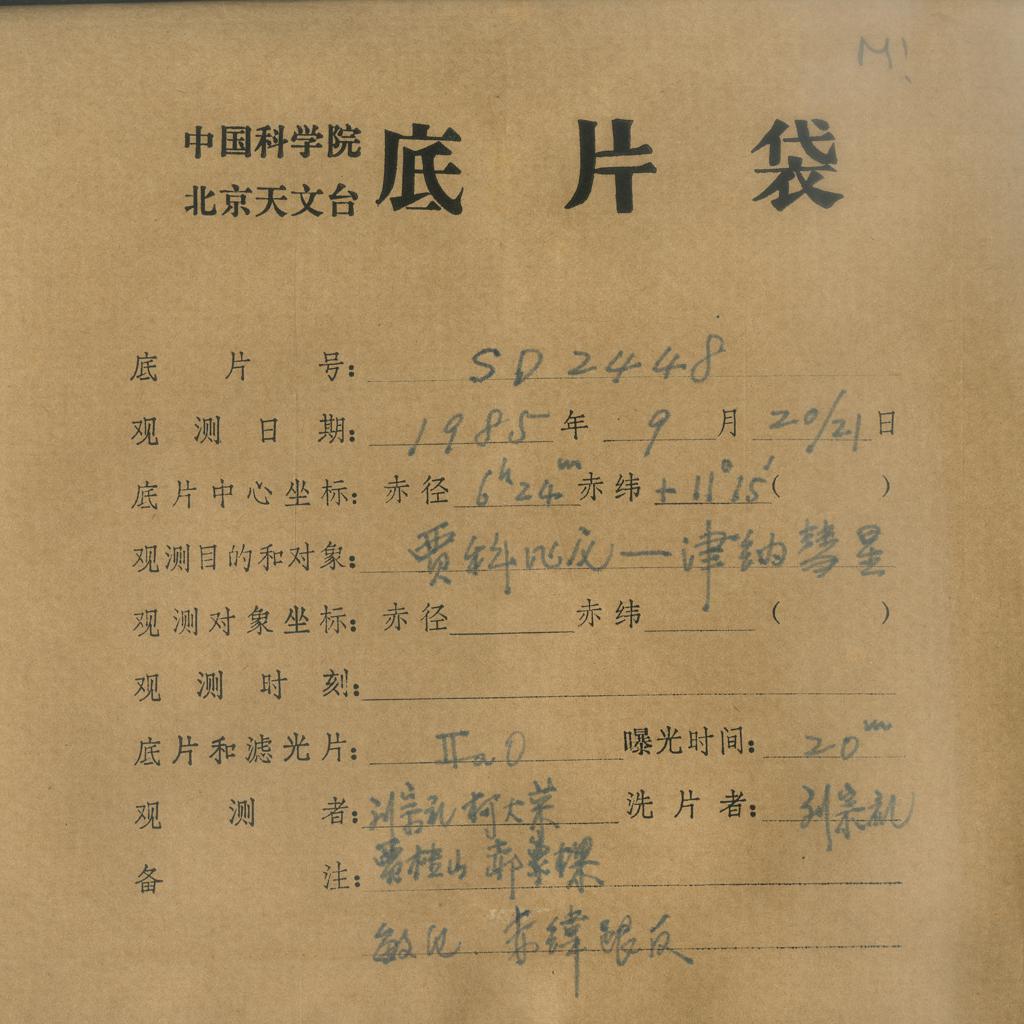 M!
中国科学院
北京天文台 底片袋
底片号: SD2448
观测日期: 1985年 9月 20/21日
底片中心坐标: 赤径 6h24m 赤纬 +11°15′( )
观测目的和对象: 贾科比尼—津纳彗星
观测对象坐标: 赤径 赤纬 ( )
观测时刻:
底片和滤光片: IIaO 曝光时间: 20m
观测者: 刘宗礼 柯大荣 洗片者: 刘宗礼
备注: 贾桂山 郝象樑
敏化 赤纬跟反